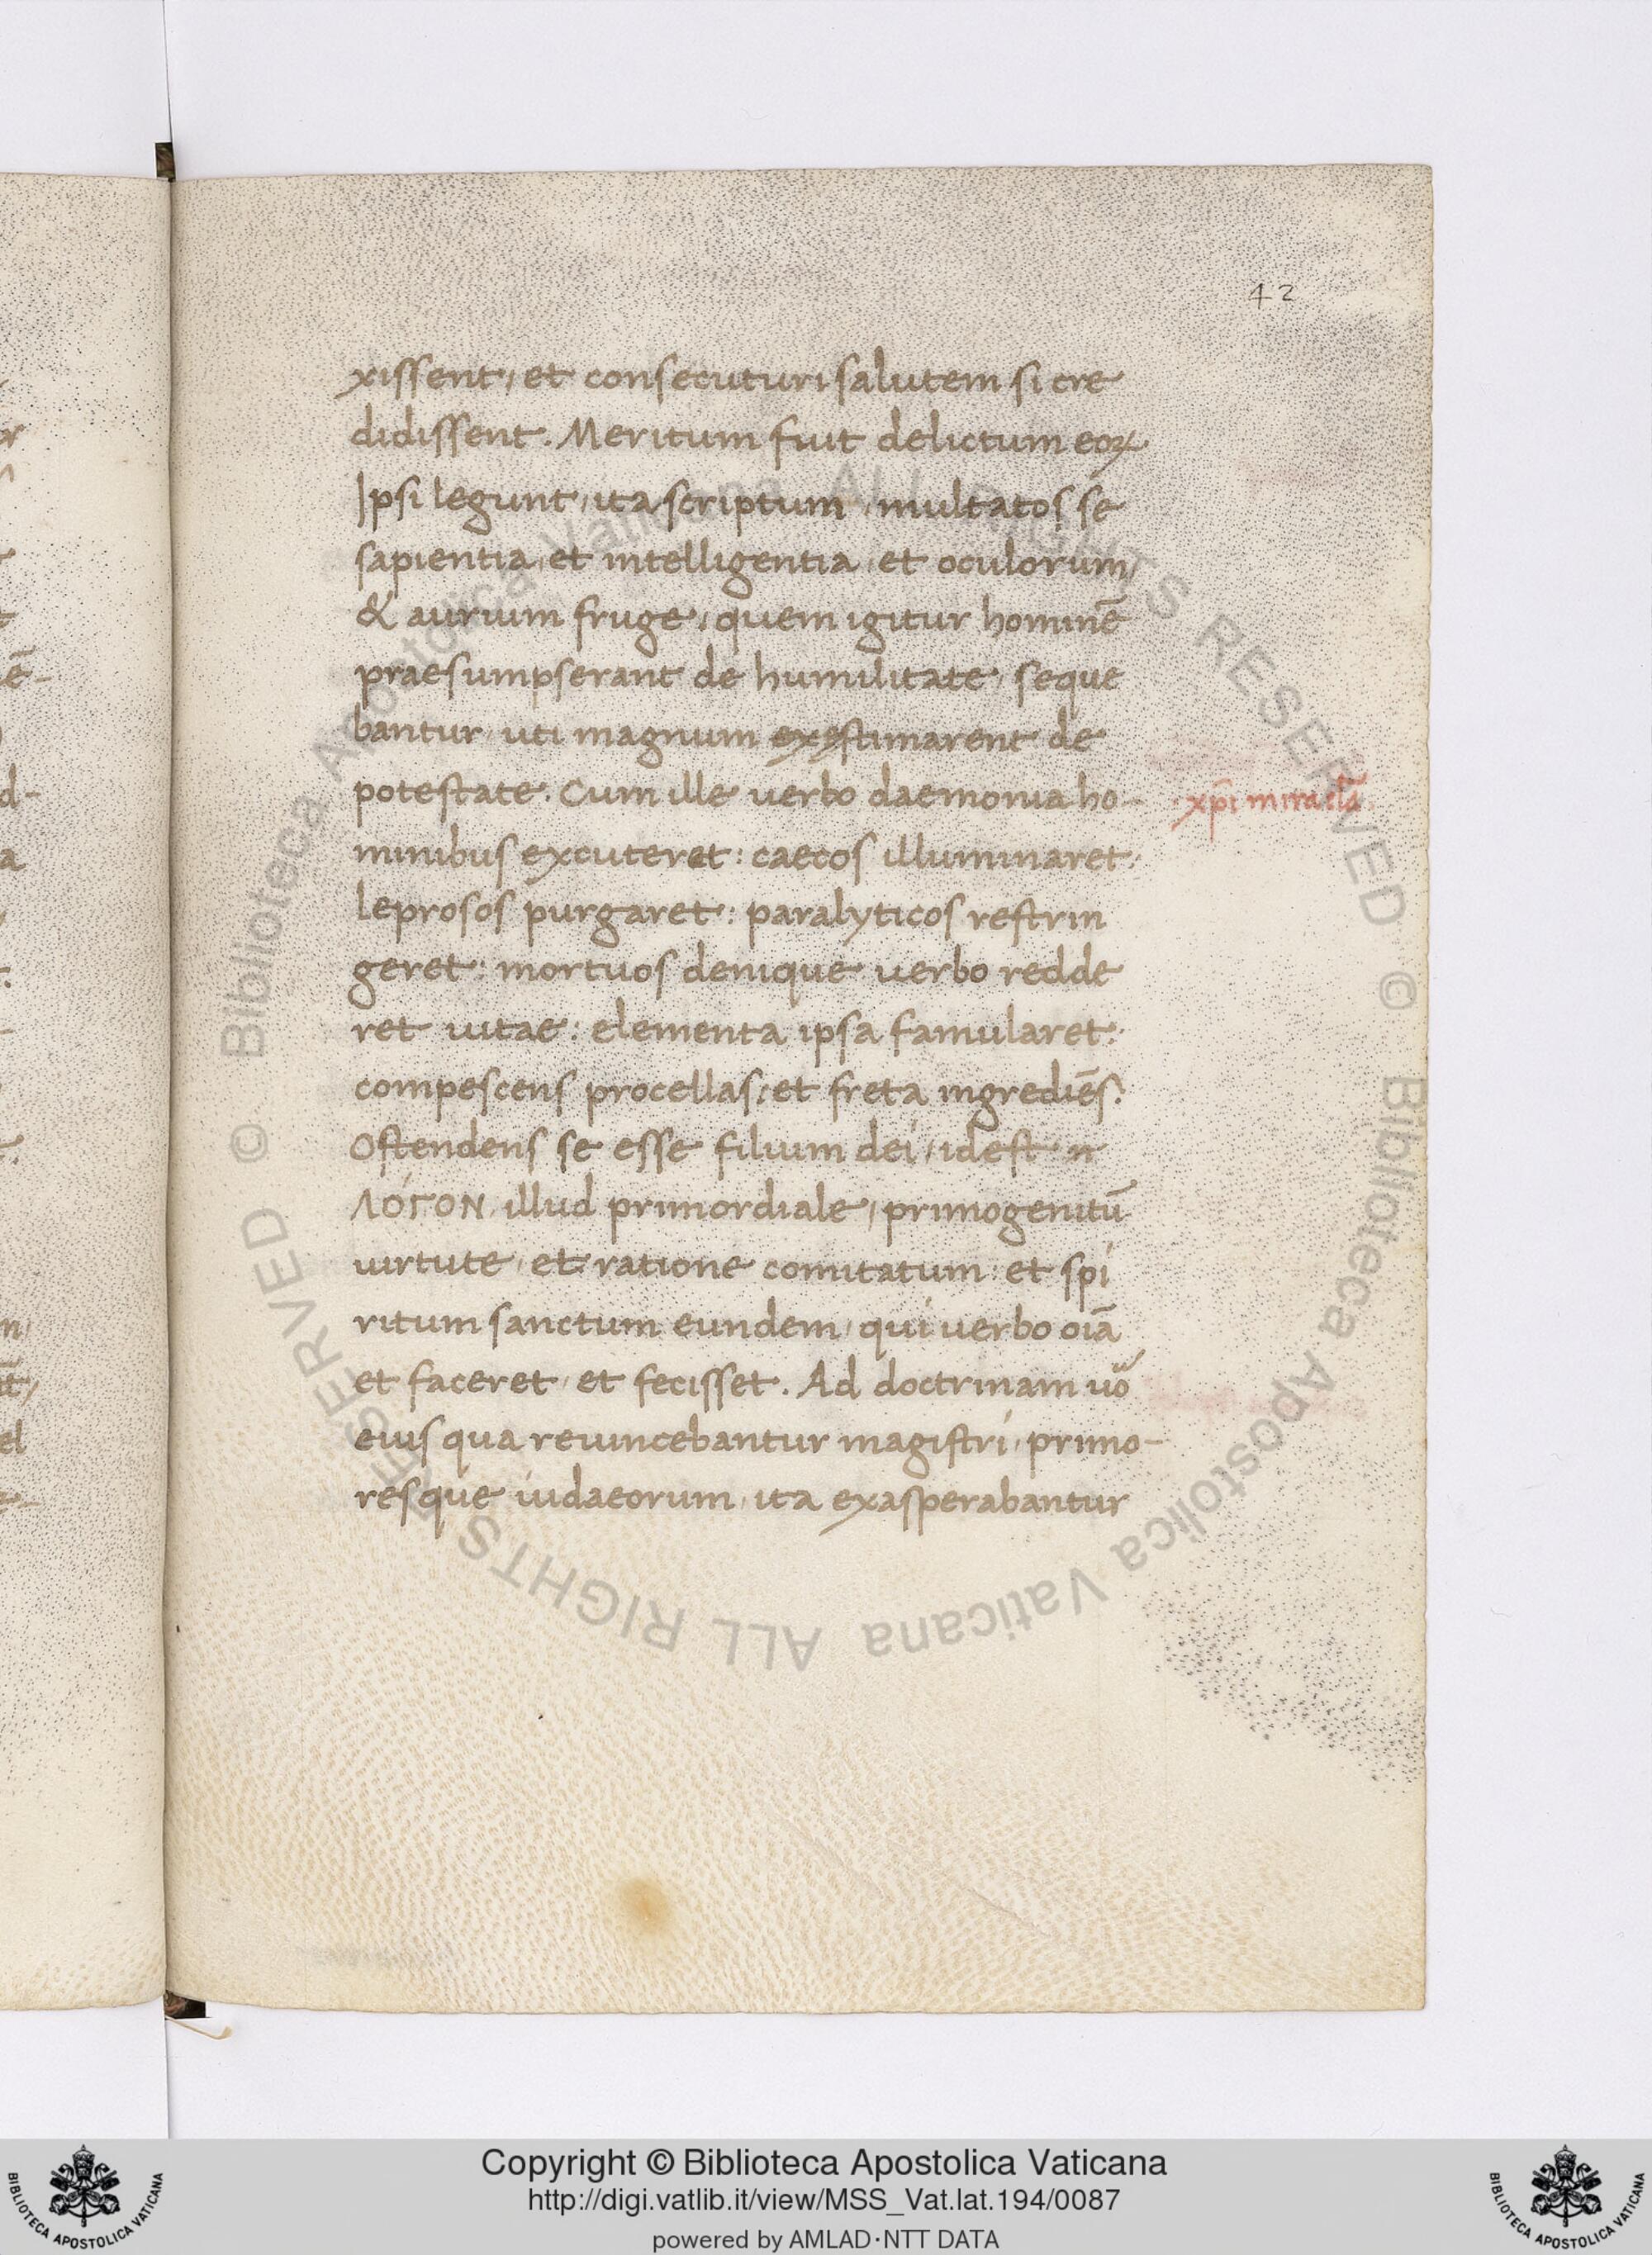 42
xissent, et consecuturi salutem si cre
didissent. Meritum fuit delictum eoꝝ
Ipsi legunt, ita scriptum, multatos se
sapientia, et intelligentia, et oculorum,
& aurium fruge, quem igitur hominē
praesumpserant de humilitate, seque
bantur, uti magnum exestimarent de
potestate. Cum ille verbo daemonia ho-
xp̄i miracl̄a
minibus excuteret: caecos illuminaret:
leprosos purgaret: paralyticos restrin
geret: mortuos denique verbo redde
ret vitae: elementa ipsa famularet:
compescens procellas: et freta ingrediēs:
Ostendens se esse filium dei, idest
ΛÓΓΟΝ, illud primordiale, primogenitū
virtute, et ratione comitatum: et spi
ritum sanctum eundem, qui verbo oīa
et faceret, et fecisset. Ad doctrinam uō
eius qua revincebantur magistri, primo-
resque iudaeorum, ita exasperabantur
© Biblioteca Apostolica Vaticana ALL RIGHTS RESERVED © Biblioteca Apostolica Vaticana ALL RIGHTS RESERVED
Copyright © Biblioteca Apostolica Vaticana
http://digi.vatlib.it/view/MSS_Vat.lat.194/0087
powered by AMLAD·NTT DATA
BIBLIOTECA APOSTOLICA VATICANA
BIBLIOTECA APOSTOLICA VATICANA